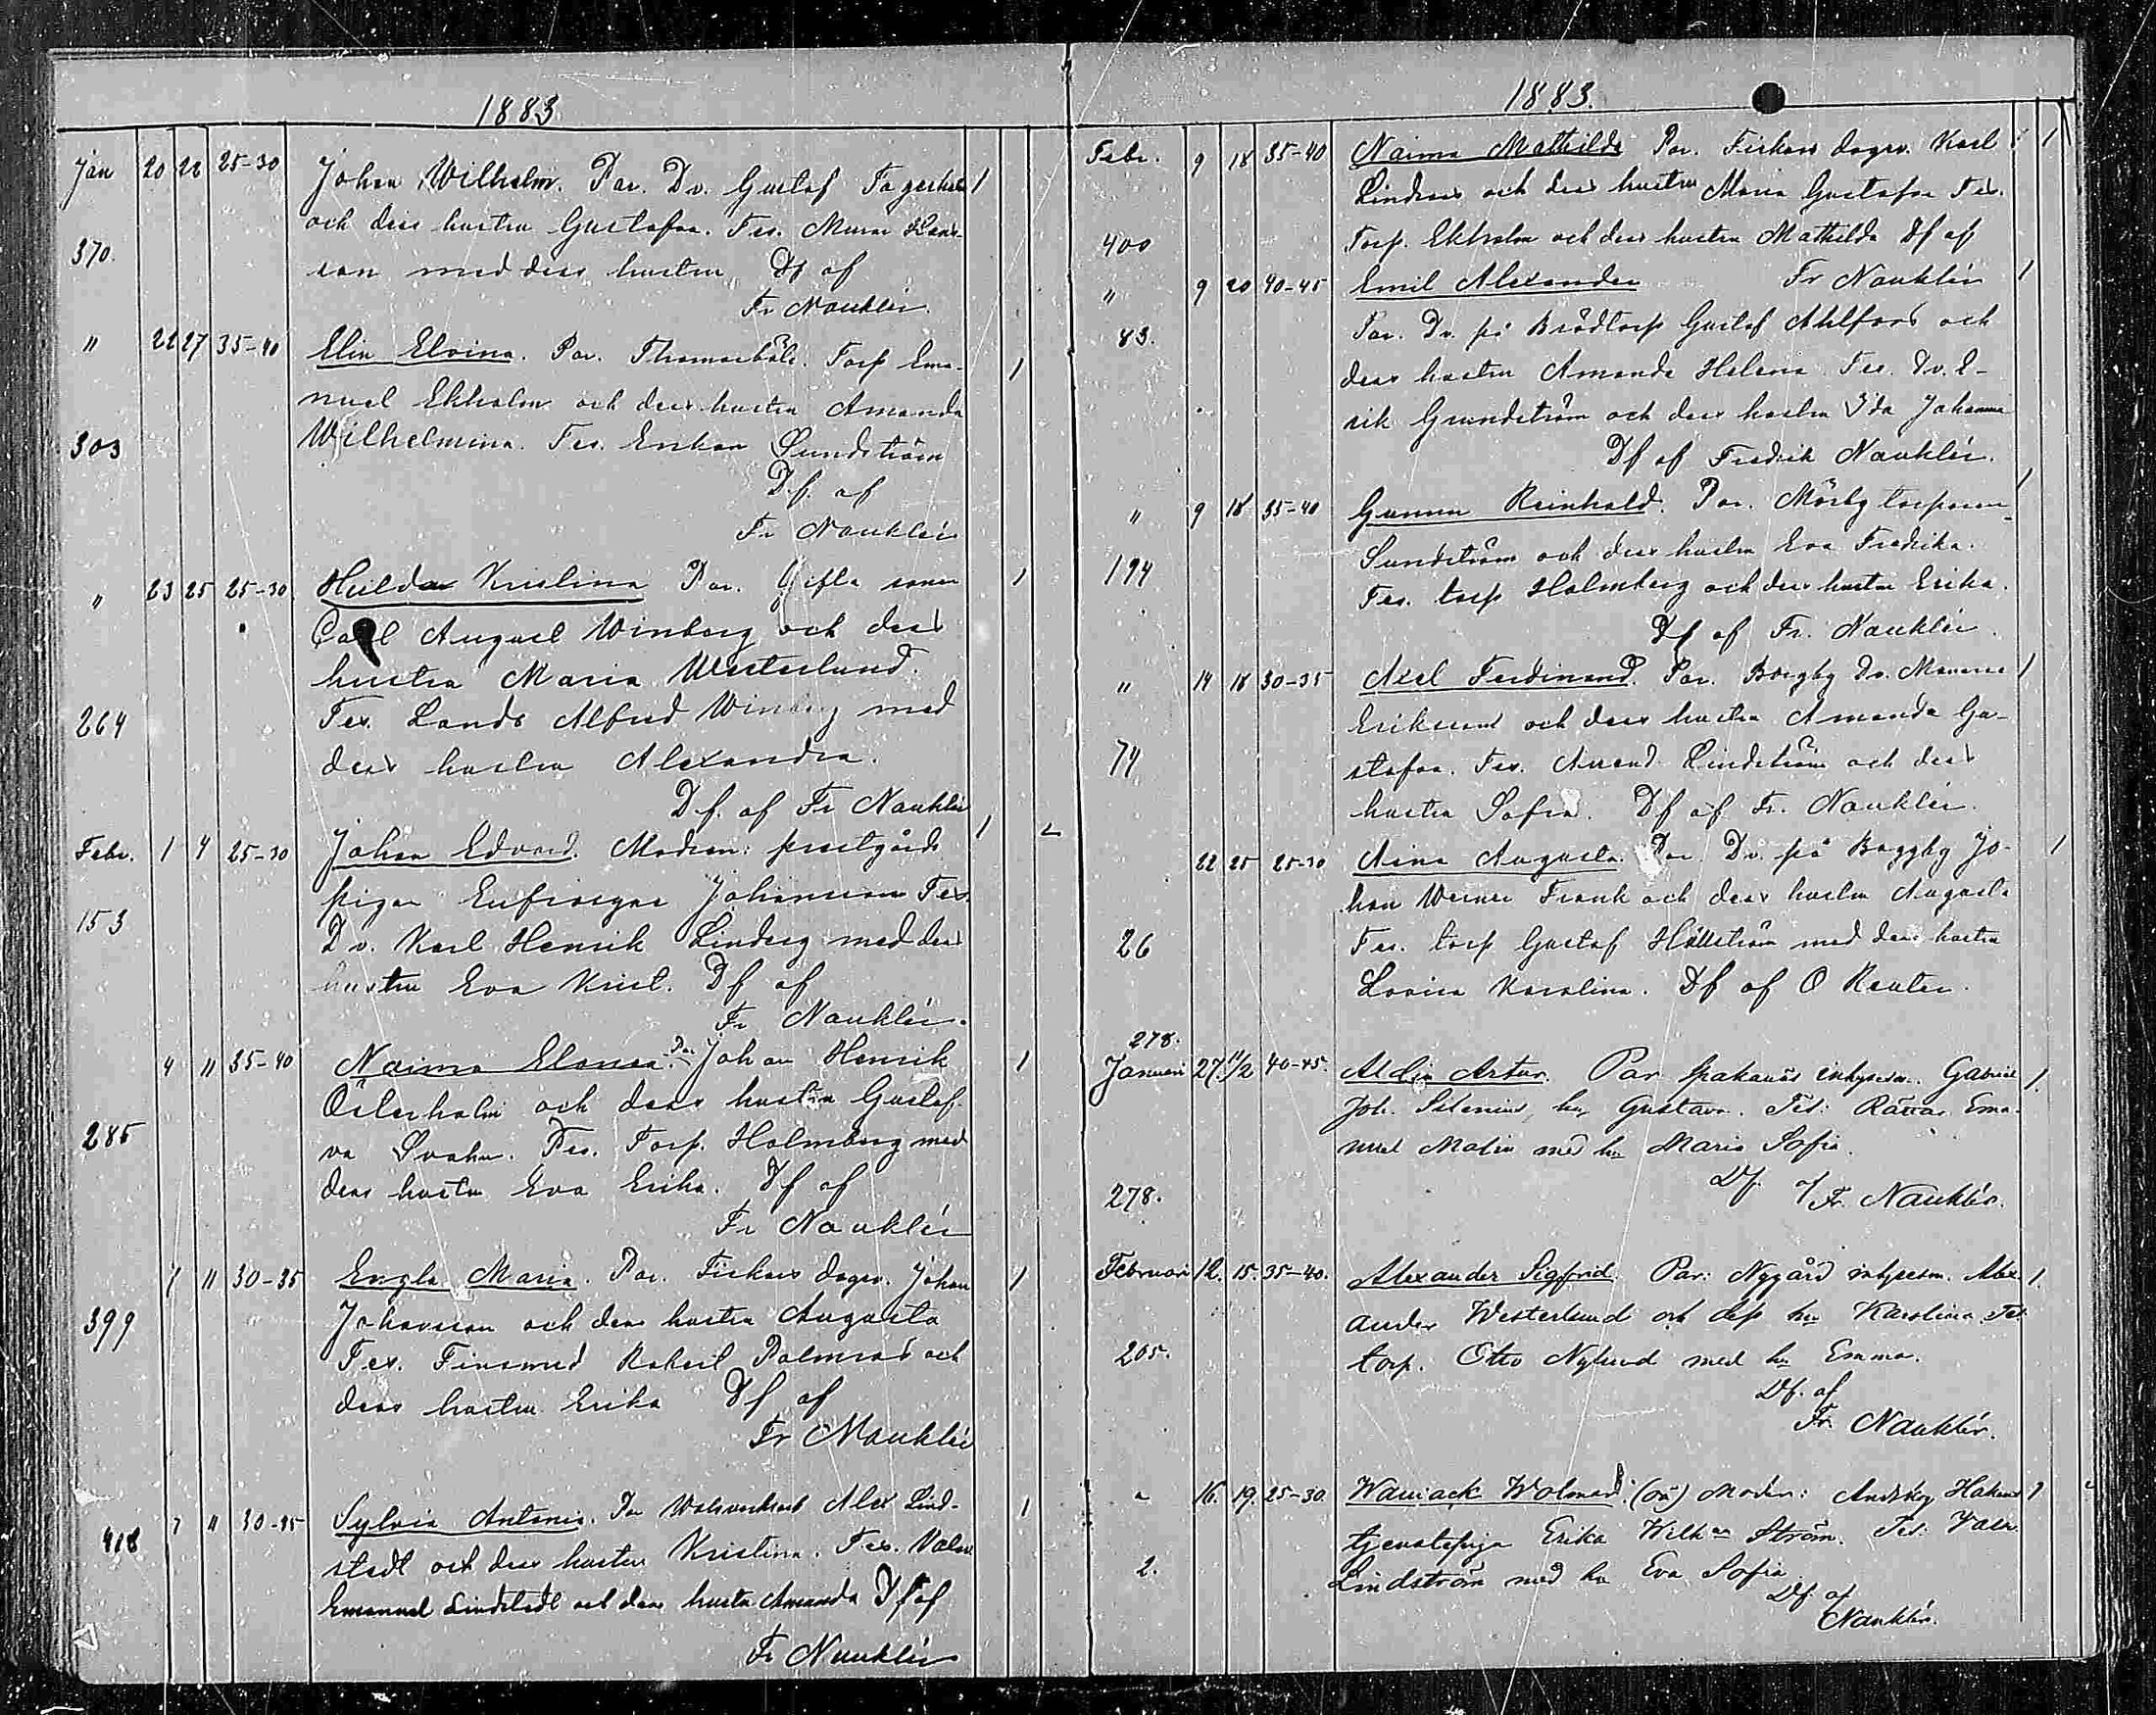 1883
Jan 20 22 25-30 Johan Wilhelm. Par. Dr. Gustaf Fagerholm 1
och dess hustru Gustafva. Tes. Murar
370. son med dess hustru Df af
Fr Nauklér.
" 22 27 35-40 Elin Elvina. Par. Thomasböle. Torp Ema- 1
nuel Ekholm och dess hustru Amanda
303 Wilhelmina. Tes. Enkan Sundström
Df. af
Fr Nauklér
" 23 25 25-30 Hulda Kristina Par. Gifta sonen 1
Carl August Winberg och dess
hustru Maria Westerlund.
264 Tes. Lands Alfred Winberg med
dess hustru Alexandra.
Df. af Fr Nauklér
Febr. 1 4 25-30 Johan Edvard. Modren: prestgårds 1 2
pigan Eufrosyne Johansson Tes.
153 Dr. Karl Henrik Lindberg med dess
hustru Eva Krist. Df af
Fr Nauklér.
4 11 35-40 Naima Elonea. Par Johan Henrik 1
Österholm och dess hustru Gustaf-
285 va Svahn. Tes. Torp. Holmberg med
dess hustru Eva Erika. Df af
Fr Nauklér
1 11 30-35 Engla Maria. Par. Fiskars dagsv. Johan 1
399 Johansson och dess hustru Augusta
Tes. Finsmed Robert Palmros och
dess hustru Erika Df af
Fr Nauklér
418 7 11 30-35 Sylvia Antonia. Par Alex Lind- 1
stedt och dess hustru Kristina. Tes. Valsv.
Emanuel Lindstedt och dess hustru Amanda Df af
Fr Nauklér
1883.
Febr. 9 18 35-40 Naima Mathilda Par. Fiskars dagsv. Karl 1
Lindroos och dess hustru Maria Gustafva Tes.
400 Torp. Ekholm och dess hustru Mathilda Df af
" 9 20 40-45 Emil Alexander Fr Nauklér 1
83. Par. Dr. på Brödtorp Gustaf Ahlfors och
dess hustru Amanda Helena Tes. Dr. E-
rik Grundström och dess hustru Ida Johanna
Df af Fredrik Nauklér.
" 9 18 35-40 Gunnar Reinhold. Par. Mörby torparen 1
194 Sundström och dess hustru Eva Fredrika.
Tes. torp Holmberg och dess hustru Erika.
Df af Fr. Nauklér.
" 14 18 30-35 Axel Ferdinand. Par. Borgby Dr. 1
Eriksson och dess hustru Amanda Gu-
74 stafva. Tes. Lindström och dess
hustru Sofia. Df af Fr. Nauklér.
22 25 25-30 Aina Augusta. Par. Dr. på Baggby Jo- 1
han Werner Frank och dess hustru Augusta
26 Tes. torp Gustaf Hällström med dess hustru
Lovisa Karolina. Df af O Reuter.
278.
Januari 27. 11/2 40-45. Aldin Artur. Par Spakanäs inhysesm. Gabriel 1
Joh. Selenius, hu Gustava. Tes: Rättar. Ema-
nuel Malin med hu Maria Sofia.
278. Df. af Fr. Nauklér.
Februari 12. 15. 35-40. Alexander Sigfrid. Par: Nygård inhysesm. Alex- 1
ander Westerlund och dess hu Karolina. Tes
205. torp. Otto Nylund med hu Emma.
Df. af
Fr. Nauklér.
" 16. 19. 25-30. Wolmar. (oä) Modren: Håkans 1
tjenstepiga Erika Ström. Tes:
2. Lindström med hu Eva Sofia.
Df. af
Nauklér.